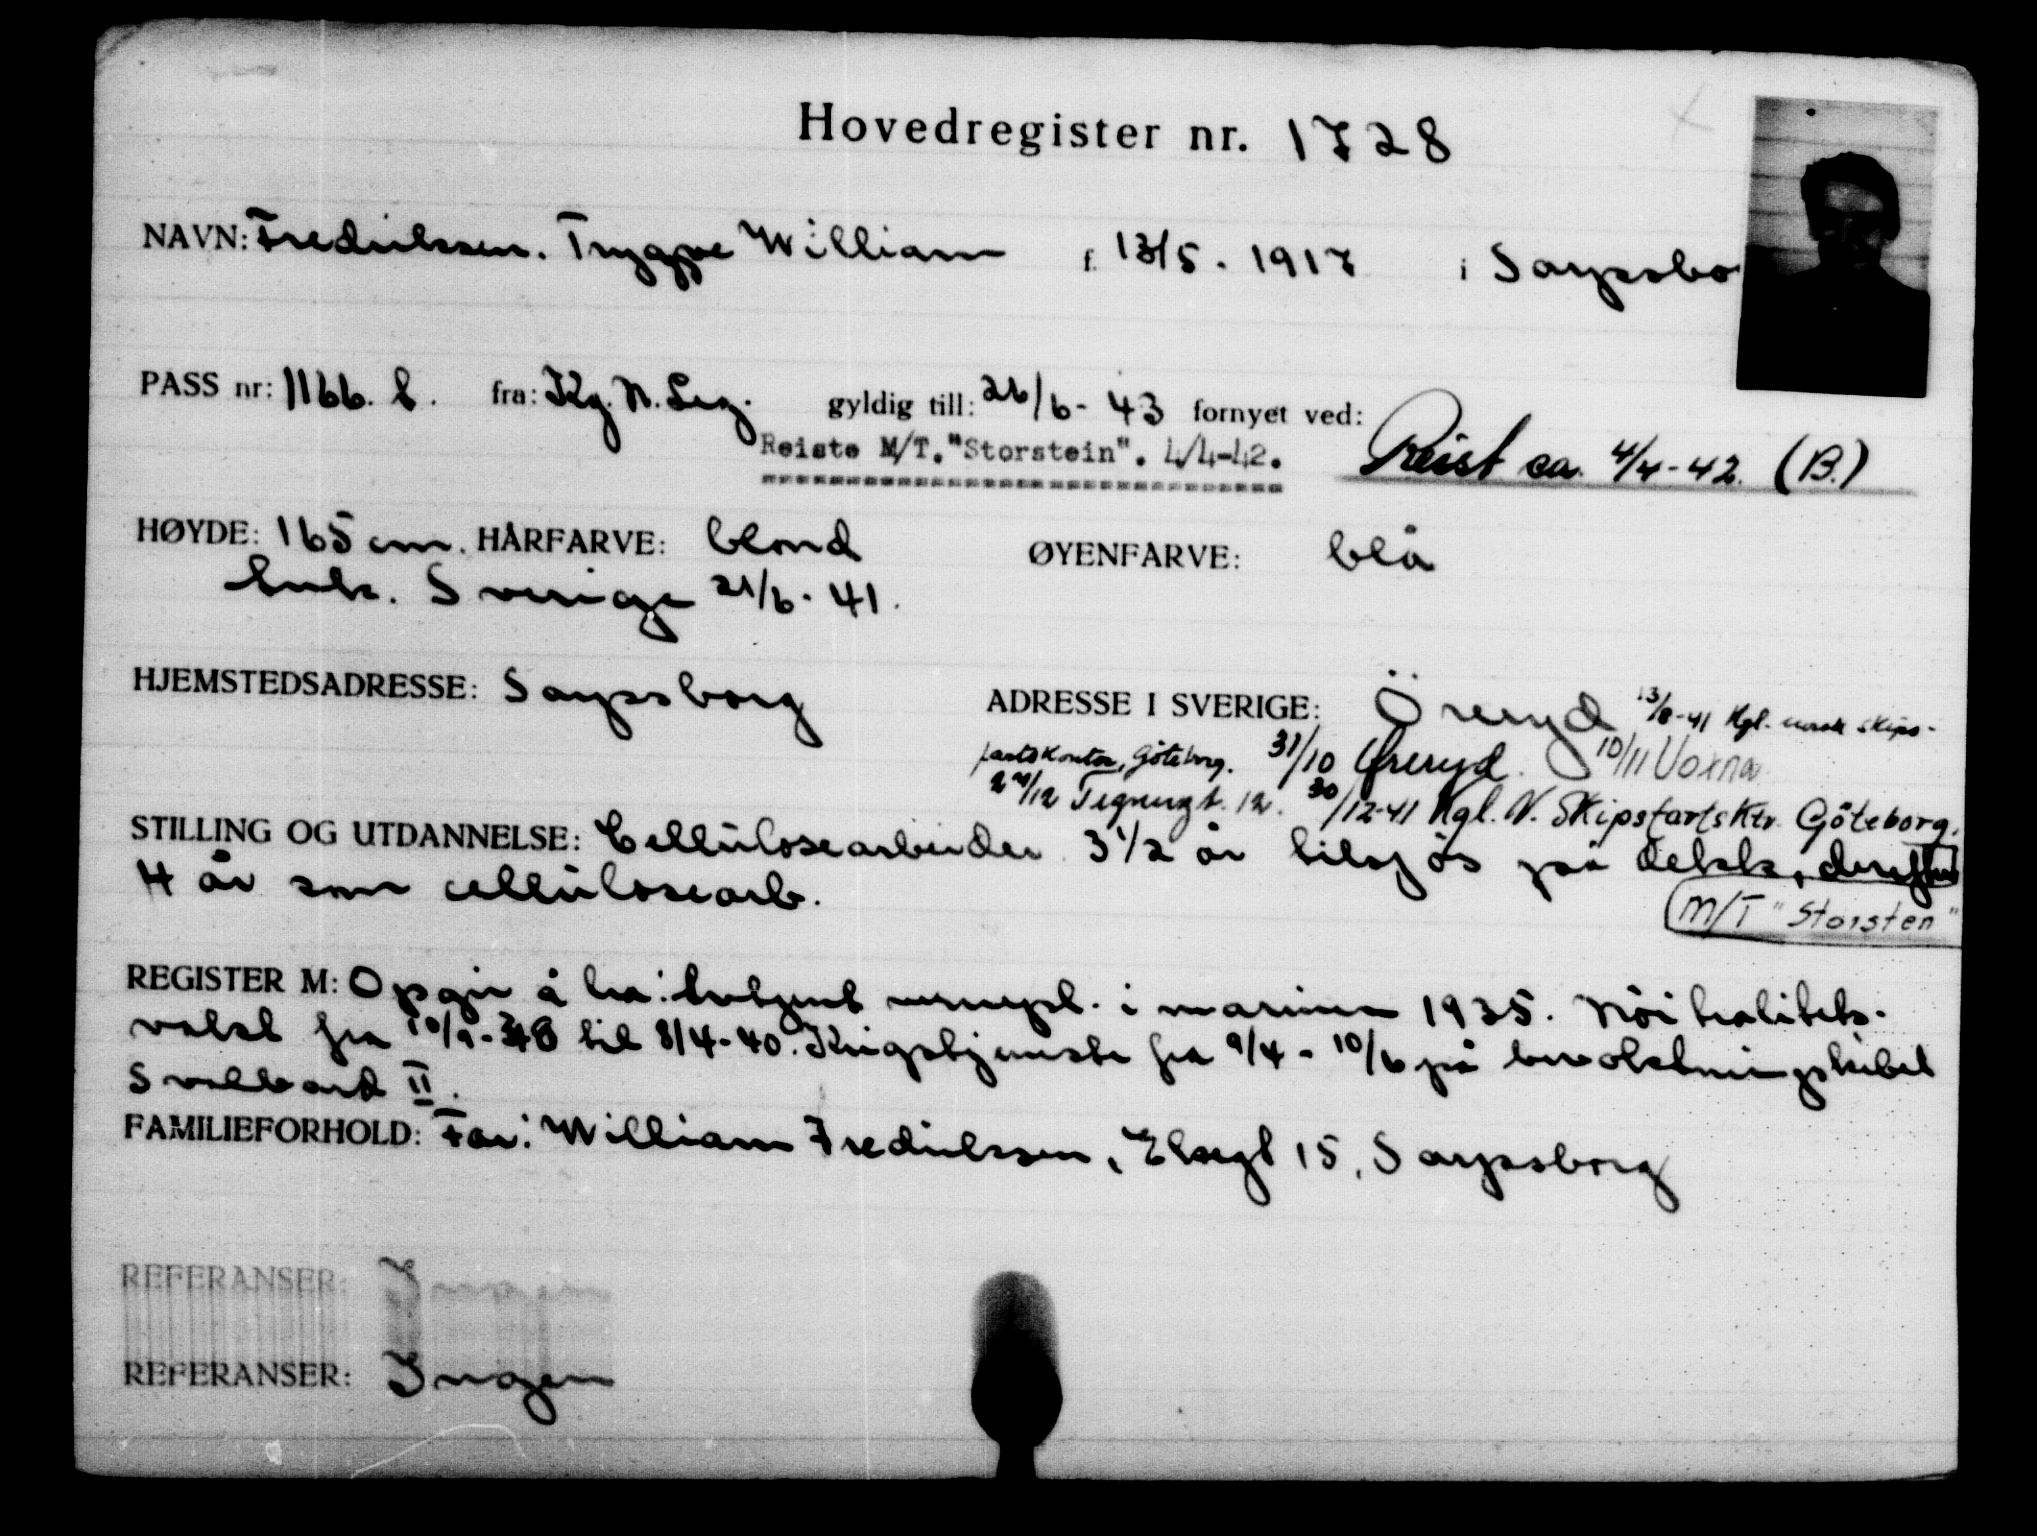 Hovedregister nr. 1728
NAVN: Fredriksen. Trygve William f. 13/5. 1917 i Sarpsbo
PASS nr: 1166. b. fra: Kg. N. Leg. gyldig till: 26/6-43 fornyet ved:
Reiste M/T."Storstein". 4/4-42. Reist ca. 4/4-42. (B.)
HØYDE: 165 cm. HÅRFARVE: blond ØYENFARVE: blå
Ank. Sverige 21/6-41.
HJEMSTEDSADRESSE: Sarpsborg ADRESSE I SVERIGE: Öreryd 13/8-41 Kgl. norsk skips-
fartskontor, Göteborg. 31/10 Öreryd. 10/11 Voxna
12 Tegnergt. 12. 30/12-41 Kgl. N. Skipsfartsktr. Göteborg.
STILLING OG UTDANNELSE: Cellülosearbeider 3 1/2 år tilsjös på dekk, derefter
4 år som cellülosearb.
M/T "Storsten"
REGISTER M: Opgir å ha: avtjent vernepl. i marinen 1935. Nöitralitets-
vakt fra 10/9- til 8/4-40. Krigstjeneste fra 9/4 - 10/6 på bevoktningskibet
Svalbard II.
FAMILIEFORHOLD: Far: William Fredriksen, 15, Sarpsborg
REFERANSER: Ingen
REFERANSER: Ingen